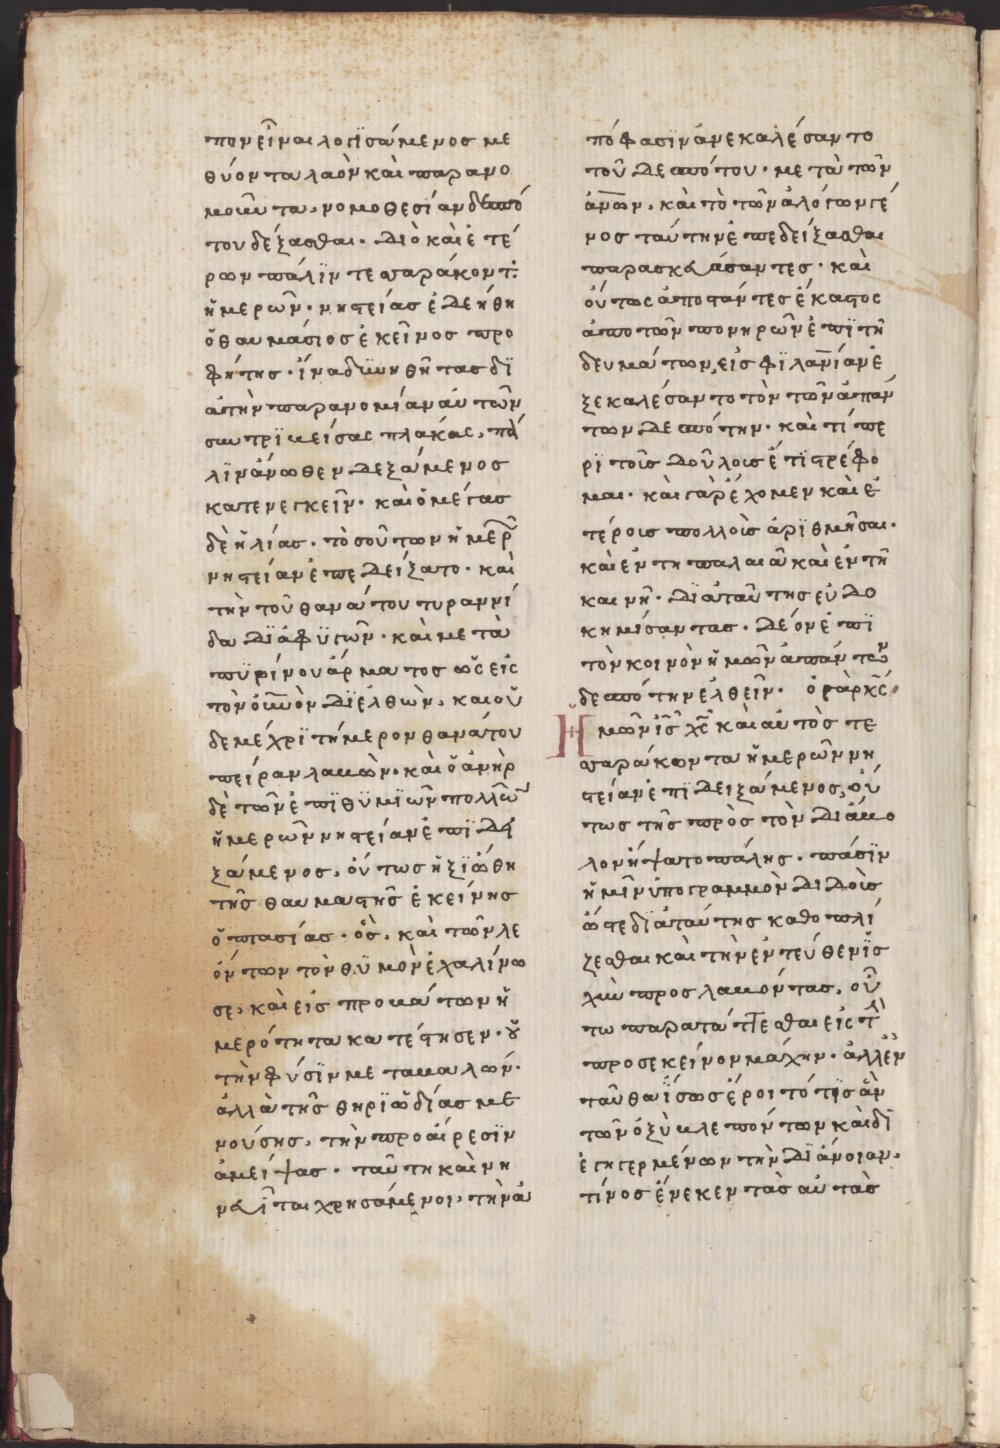 πονεἶναι λογϊσάμενοσ με
θύοντα λαὸν καὶ παρανο
μοῦντα, νομοθεσίαν δεσπό
του δέξασθαι. Διὸ καὶ ἑτέ
ρων πάλϊν τεσσαράκοντ
ἡμερῶν. νηστείασ ἐδεήθη
ὁ θαυμάσιοσ ἐκεῖνοσ προ
φήτης. ἵνα δυνηθῆ τασ δϊ
ὰ τὴν παρανομίαν αὐτῶν
συντριβείσας πλάκας, πά
λϊν ἄνωθεν δεξάμενοσ
κατενεγκεῖν. καὶ ὁ μέγασ
δὲ ἠλίασ. τὸσούτων ἡμερῶν
νηστείαν ἐπεδείξατο. καὶ
τὴν τοῦ θανάτου τυραννί
δα δϊάφϋγῶν. καὶ μετὰ
πϋρίνου ἅρματοσ ὡς εἰς
τὸν οὐνὸν δϊελθὼν, καὶ οὐ
δε μέχρϊ τήμερον θανάτου
πεῖραν λαβὼν. καὶ ὁ ἀνὴρ
δὲ τῶν ἐπϊθϋμϊῶν πολλῶν
ἡμερῶν νηστείαν ἐπϊδει
ξάμενοσ, οὕτωσ ἠξϊώθη
τῆσ θαυμαστῆσ ἐκείνησ
ὀπτασίασ. ὃσ, καὶ τῶν λε
όντων τὸν θϋμὸν ἐχαλίνω
σε, καὶ εἰσ προβάτων ἡ
μερότητα κατέστησεν. οὐ
τὴν φύσϊν μεταβαλών.
ἀλλὰ τῆσ θηρϊωδίασ με
νούσησ, τὴν προαίρεσϊν
ἀμείψασ. ταύτη καὶ νη
νευῖται χρησάμενοι, τὴν ἀ
πόφασϊν ἀνεκαλέσαντο
τοῦ δεσπότου. μετὰ τῶν
ἀνων, καὶ τὸ τῶν ἀλόγων γέ
νοσ ταύτην ἐπεδείξασθαι
παρασκευάσαντεσ. καὶ
οὕτως ἀποστάντεσ ἕκαστος
ἀπο τῶν πονηρῶν ἐπϊτη
δευμάτων, εἰσ φϊλανίαν ἐ
ξεκαλέσαντο τὸν τῶν ἁπάν
των δεσπότην. καὶ τί πε
ρϊ τοὺσ δούλουσ ἔτϊ στρέφο
μαι. καὶ γὰρ ἔχομεν καὶ ἑ
τέρουσ πολλοὺσ ἀρϊθμῆσαι.
καὶ ἐν τη παλαιᾶ καὶ ἐν τῆ
καινῆ. δϊὰ ταύτησ εὐδο
κημίσαντασ. δέον ἐπϊ
τὸν κοινὸν ἡμῶν ἁπάντων
δεσπότην ἐλθεῖν. ὁ γὰρ κς
Ἡμῶν ἰς χς καὶ αὐτὸσ τε
σσαράκωντα ἡμερῶν νη
στείαν ἐπϊδειξάμενοσ, οὕ
τωσ τῆσ πρὸσ τὸν διάβο
λον ἥψατο πάλησ. πᾶσϊν
ἡμῖν ὑπογραμμὸν δϊδοὺσ
ὥστε δϊὰ ταύτησ καθοπλί
ζεσθαι καὶ τὴν ἐντεύθεν ἰσ
χὺν προσλαβόντασ, οὕ
τω παρατάττεσθαι εἰς τὴν
πρὸσ ἐκείνον μάχην. ἀλλ ἐν
ταῦθα ἴσωσ ἔροιτό τϊσ ἂν
τῶν ὀξὺ βλεπόντων καὶ δϊ
εγηγερμένων τὴν δϊάνοιαν.
τίνοσ ἕνεκεν τὰσ αὐτὰσ